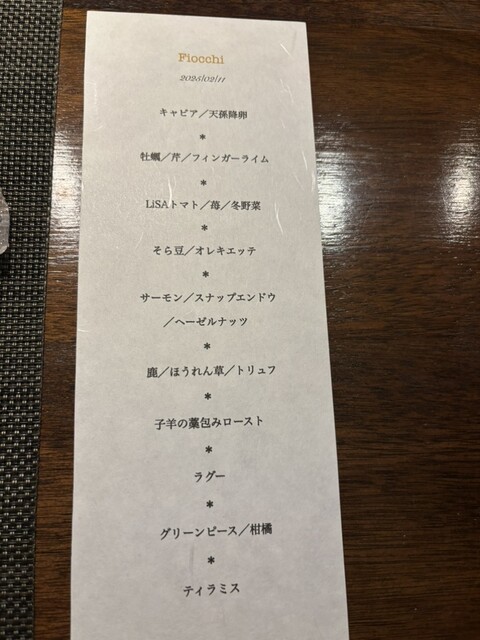 Fiocchi
2025/02/11
キャビア／天孫降卵
*
牡蠣／芹／フィンガーライム
*
LiSAトマト／苺／冬野菜
*
そら豆／オレキエッテ
*
サーモン／スナップエンドウ
／ヘーゼルナッツ
*
鹿／ほうれん草／トリュフ
*
子羊の藁包みロースト
*
ラグー
*
グリーンピース／柑橘
*
ティラミス